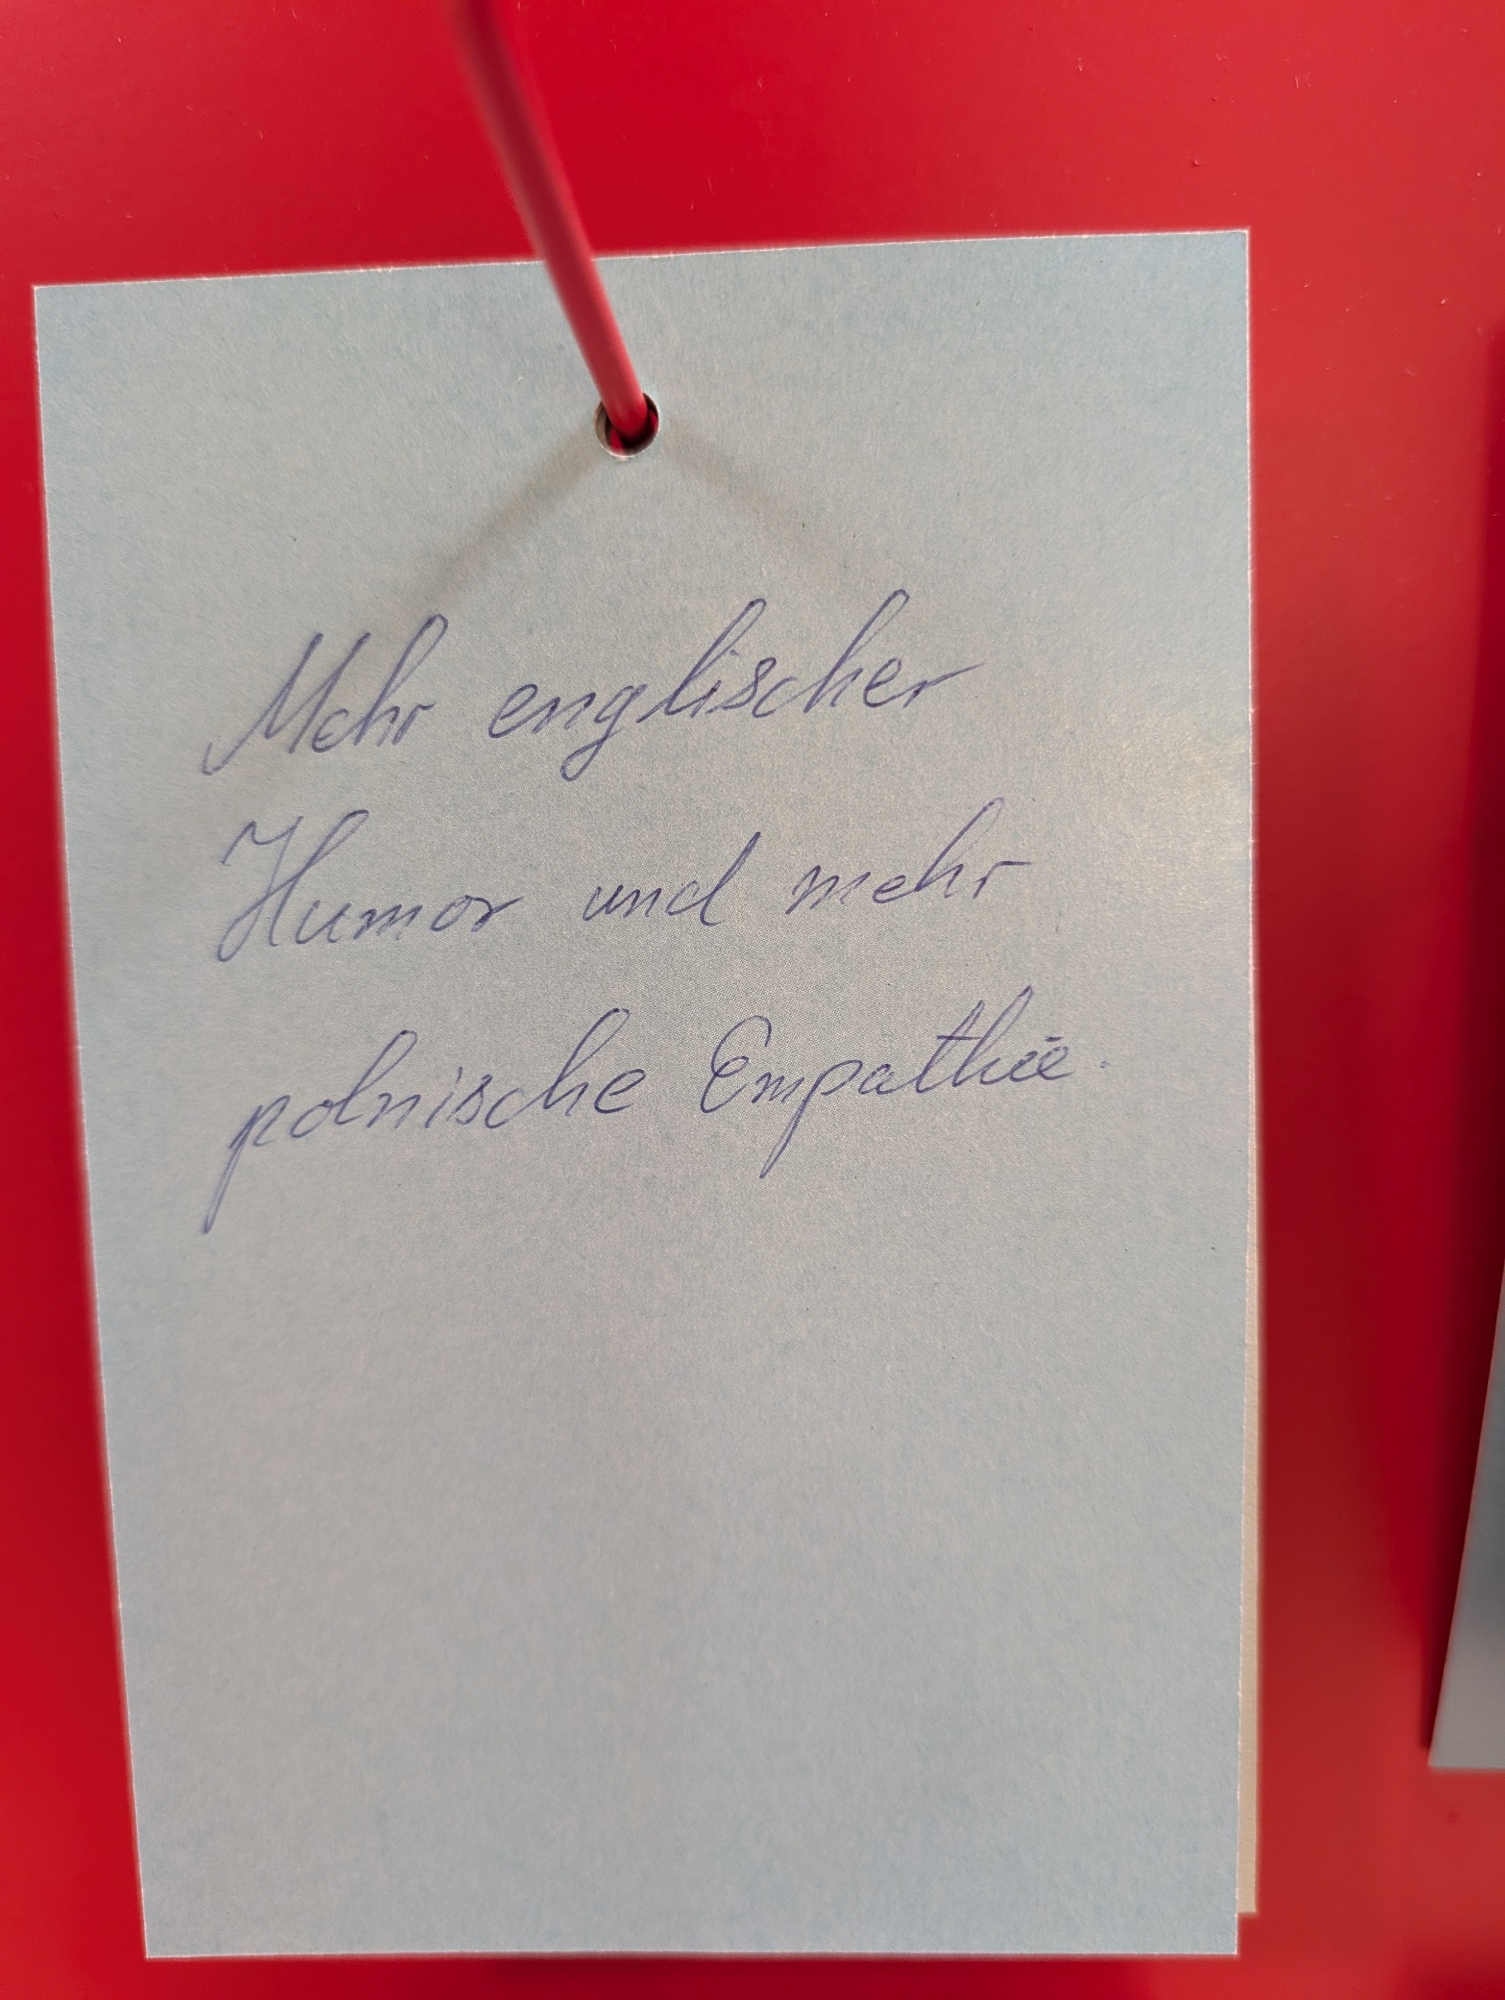 Mehr englischer
Humor und mehr
polnische Empathie.